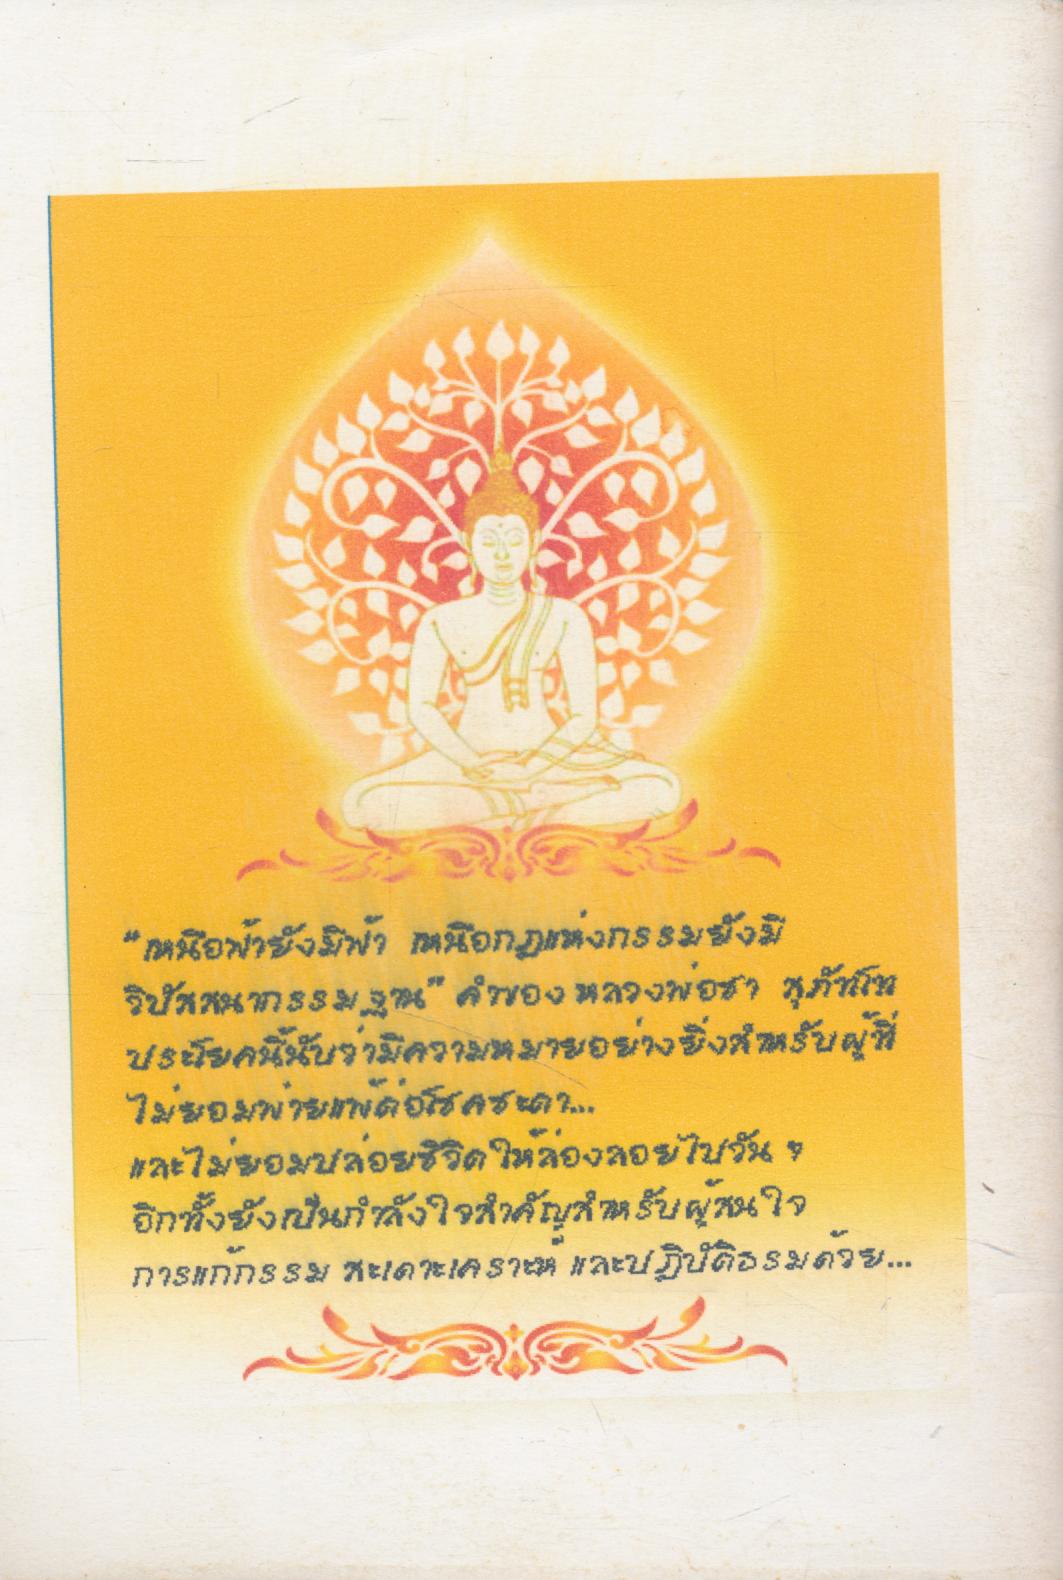 "เหนือฟ้ายังมีฟ้า เหนือกฎแห่งกรรมยังมี
วิปัสสนากรรมฐาน" คำของ หลวงพ่อชา สุภัทโท
ประโยคนี้นับว่ามีความหมายอย่างยิ่งสำหรับผู้ที่
ไม่ยอมพ่ายแพ้ต่อโชคชะตา...
และไม่ยอมปล่อยชีวิตให้ล่องลอยไปวัน ๆ
อีกทั้งยังเป็นกำลังใจสำคัญสำหรับผู้สนใจ
การแก้กรรม สะเดาะเคราะห์ และปฏิบัติธรรมด้วย...